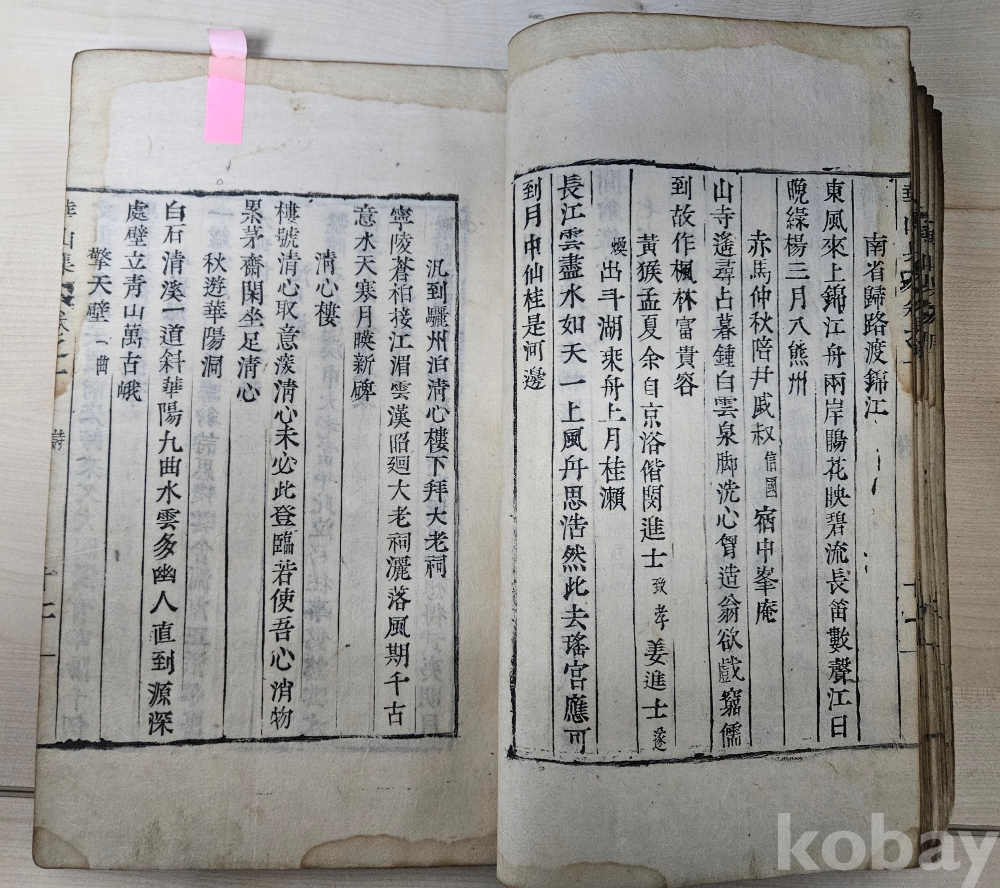 南省歸路渡錦江
東風來上錦江舟兩岸鵑花映碧流長笛數聲江日
晩綠楊三月八熊州
赤馬仲秋陪尹戚叔信國宿中峯庵
山寺遙尋占暮鍾白雲泉脚洗心胷造翁欲戲窮儒
到故作楓林富貴容
黃猴孟夏余自京浴偕閔進士致孝姜進士遂
煥出斗湖乘舟上月桂瀨
長江雲盡水如天一上風舟思浩然此去瑤宮應可
到月中仙桂是河邊
汎到驪州泊淸心樓下拜大老祠
寧陵蒼柏接江湄雲漢昭廻大老祠灑落風期千古
意水天寒月暎新碑
淸心樓
樓號淸心取意溇淸心未必此登臨若使吾心消物
累茅齋閑坐足淸心
秋遊華陽洞
白石淸溪一道斜華陽九曲水雲多幽人直到源深
處壁立靑山萬古峨
擎天壁一曲
華山集
詩
kobay